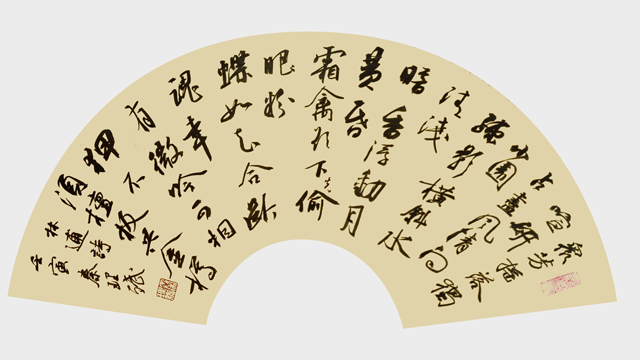 衆芳摇落獨
喧妍
占盡風情向
小園
疏影橫斜水
清淺
暗香浮動月
黄昏
霜禽欲下先偷
眼粉
蝶如知合斷
魂幸
有微吟可相
狎不
須檀板共金樽
林逋詩
壬寅秦